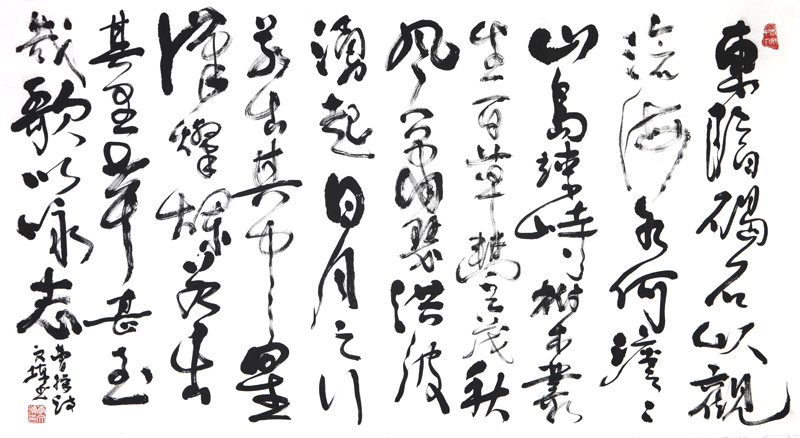 東臨碣石以觀
滄海水何澹〻
山島竦峙樹木叢
生百草豐茂秋
風蕭瑟洪波
湧起日月之行
若出其中星
漢燦爛若出
其里幸甚至
哉歌以咏志
曹操詩